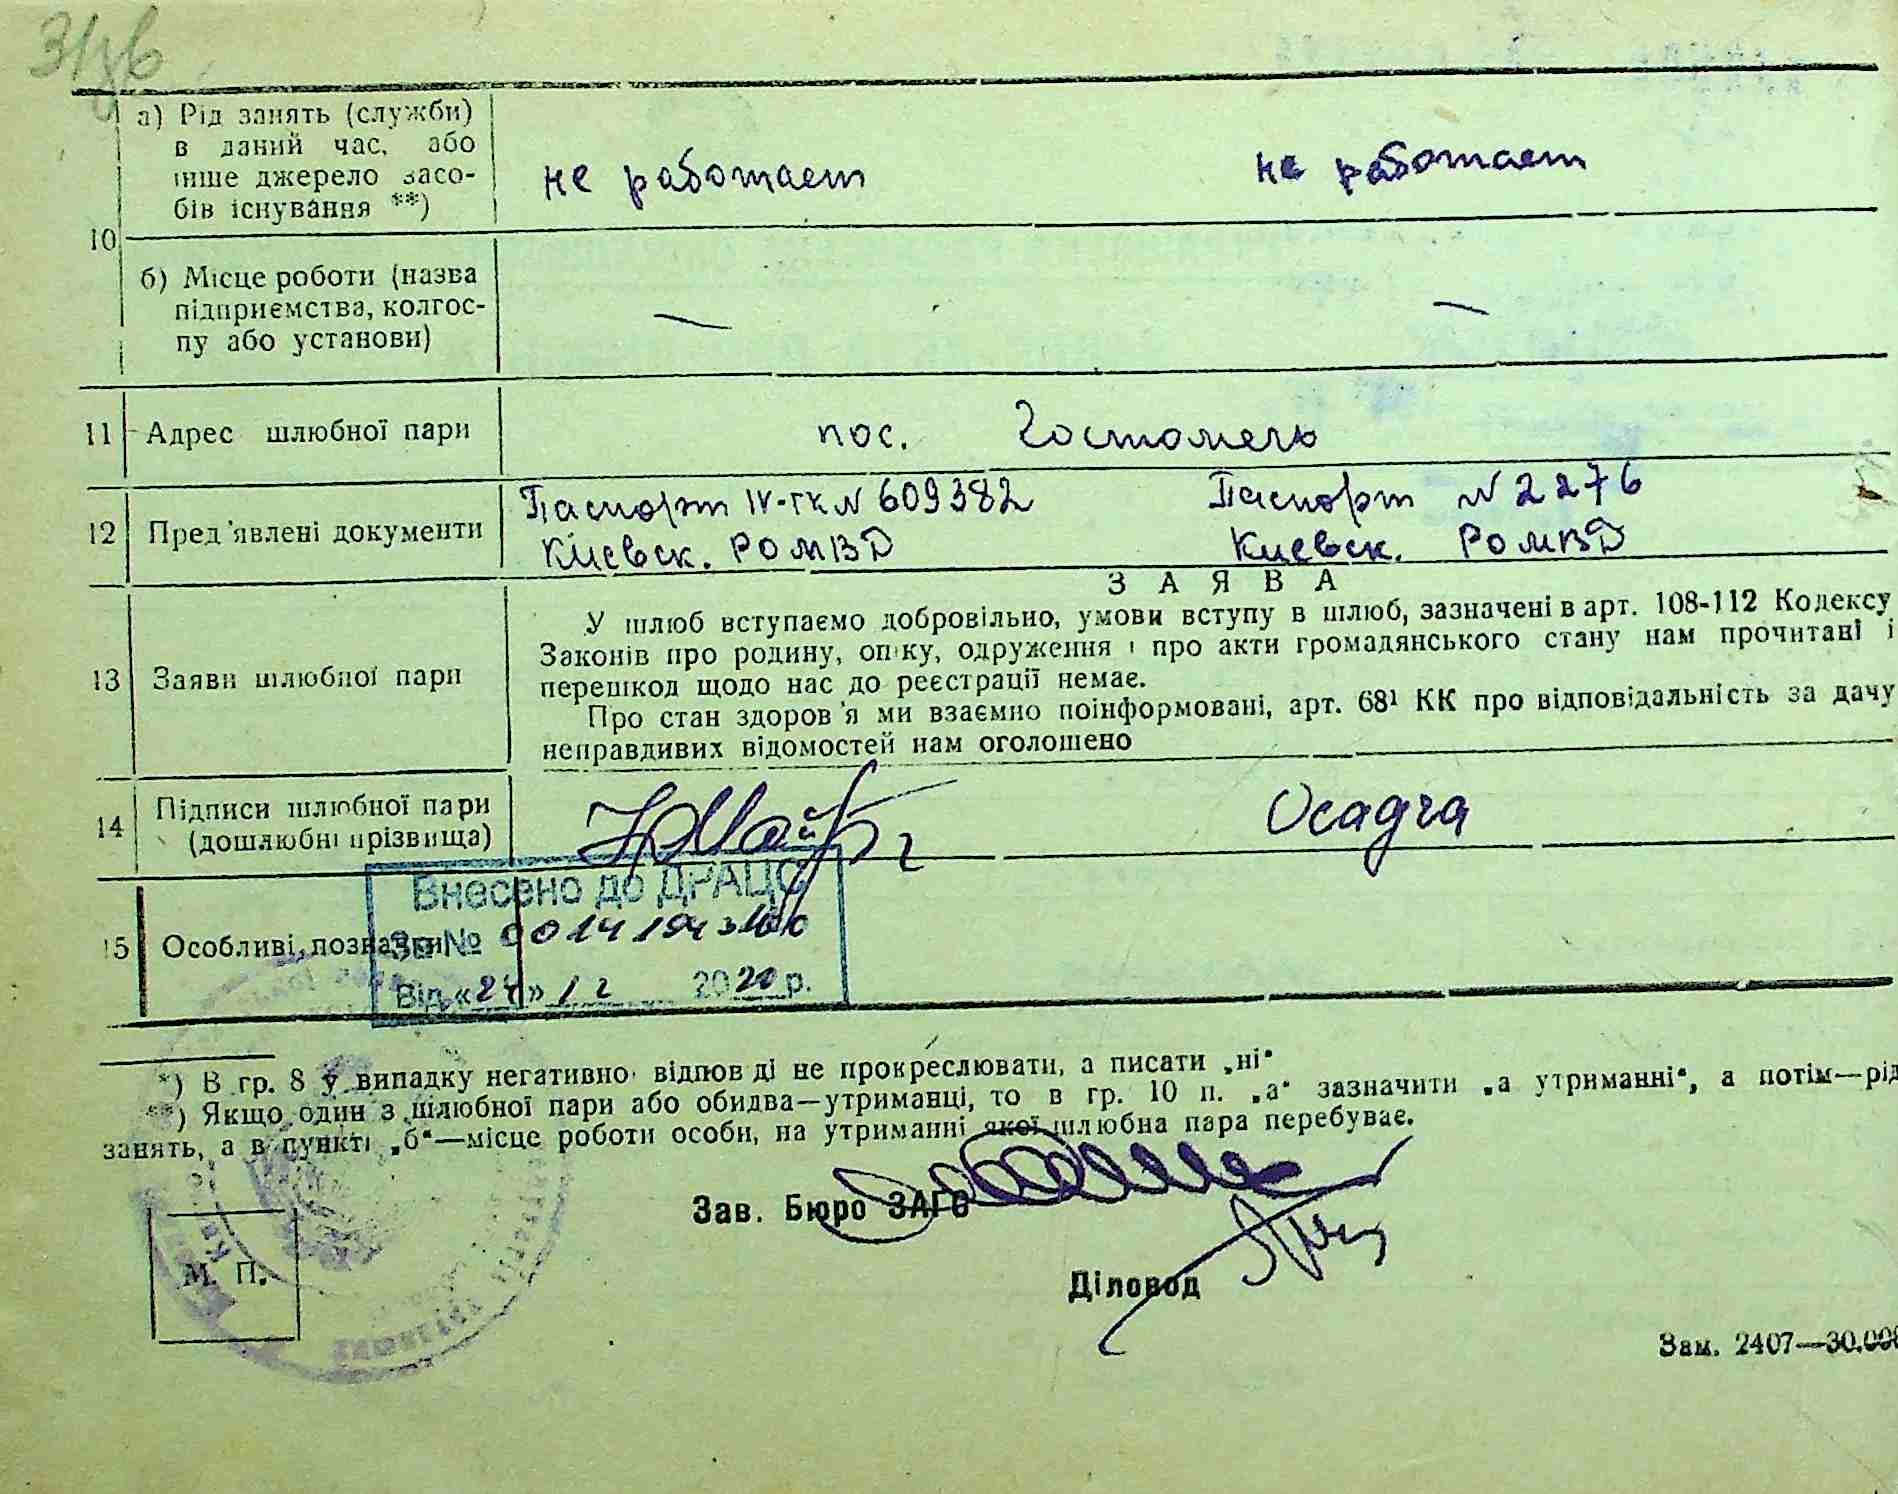 а) Рід занять (служби)
в даний час, або
інше джерело засо-
бів існування **)
не работает не работает
10
б) Місце роботи (назва
підприємства, колгос-
пу або установи)
— —
11 Адрес шлюбної пари пос. Гостомель
12 Пред'явлені документи
Паспорт IV-ГК N 609382 Паспорт N 2276
Киевск. РОМВД Киевск. РОМВД
ЗАЯВА
13 Заяви шлюбної пари
У шлюб вступаємо добровільно, умови вступу в шлюб, зазначені в арт. 108-112 Кодексу
Законів про родину, опіку, одруження і про акти громадянського стану нам прочитані і
перешкод щодо нас до реєстрації немає.
Про стан здоров'я ми взаємно поінформовані, арт. 68¹ КК про відповідальність за дачу
неправдивих відомостей нам оголошено
14 Підписи шлюбної пари
(дошлюбні прізвища)
Осадча
Внесено до ДРАЦС
15 Особливі позначки
За №
Від «24» 12 2020 р.
*) В гр. 8 у випадку негативної відповіді не прокреслювати, а писати „ні“
**) Якщо один з шлюбної пари або обидва—утриманці, то в гр. 10 п. „а“ зазначити „а утриманні“, а потім—рід
занять, а в пункті „б“—місце роботи особи, на утриманні якої шлюбна пара перебуває.
Зав. Бюро ЗАГС
М. П.
Діловод
Зам. 2407—30.000